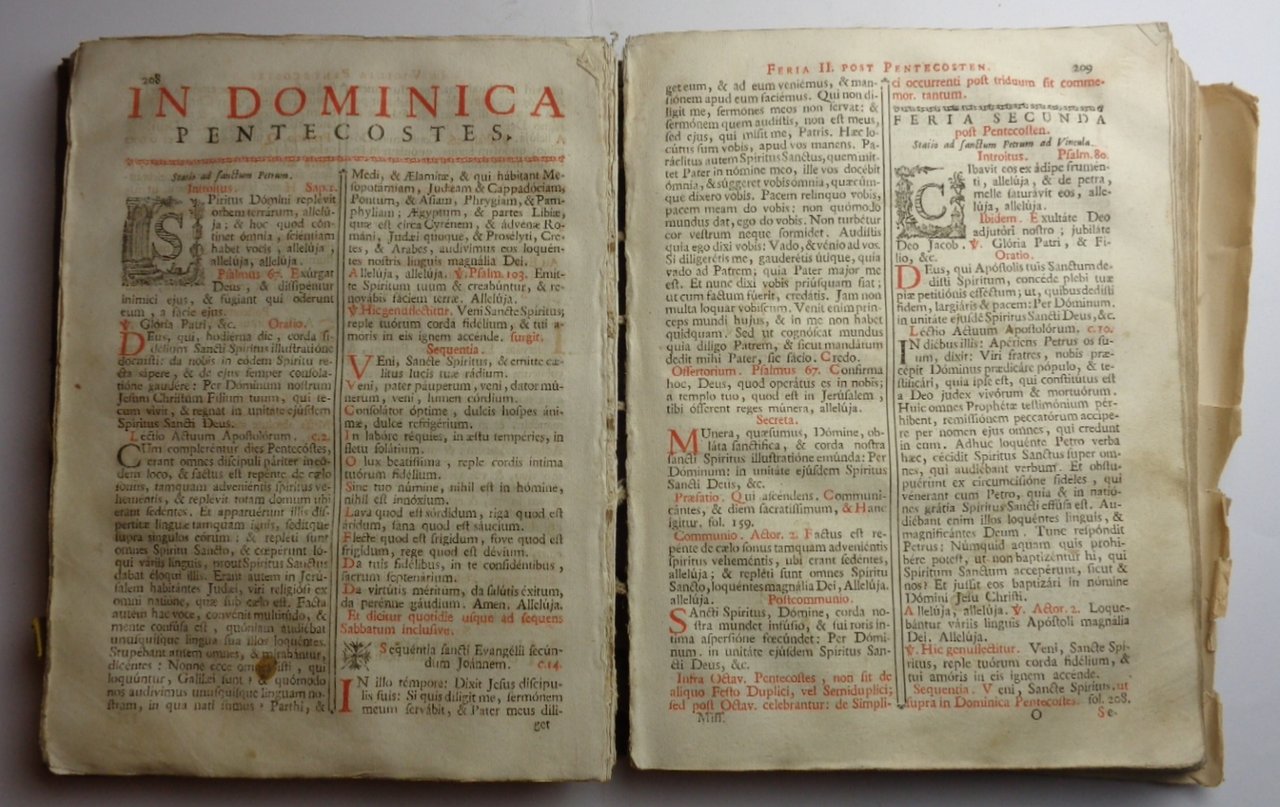 208
IN DOMINICA
PENTECOSTES.
Statio ad sanctum Petrum.
Introitus. Sap.1.
SPiritus Dómini replévit
orbem terrárum, allelú-
ja; & hoc quod cón-
tinet ómnia, scientiam
habet vocis, allelúja,
allelúja, allelúja.
Psalmus 67. Exúrgat
Deus, & dissipéntur
inimíci ejus, & fugiant qui odérunt
eum, a fácie ejus.
℣. Glória Patri, &c. Oratio.
DEus, qui, hodiérna die, corda fi-
délium Sancti Spíritus illustratióne
docuísti: da nobis in eódem Spíritu re-
cta sápere, & de ejus semper consola-
tióne gaudére: Per Dóminum nostrum
Jesum Christum Fílium tuum, qui te-
cum vivit, & regnat in unitáte ejúsdem
Spíritus Sancti Deus.
Léctio Actuum Apostolórum. c.2.
CUm compleréntur dies Pentecóstes,
erant omnes discípuli páriter in eó-
dem loco, & factus est repénte de cælo
sonus, tamquam adveniéntis spíritus ve-
heméntis, & replévit totam domum ubi
erant sedéntes. Et apparuérunt illis dis-
pertítæ linguæ tamquam ignis, sedítque
supra síngulos eórum: & repléti sunt
omnes Spíritu Sancto, & cœpérunt lo-
qui váriis linguis, prout Spíritus Sanctus
dabat éloqui illis. Erant autem in Jerú-
salem habitántes Judæi, viri religiósi ex
omni natióne, quæ sub cælo est. Facta
autem hac voce, convénit multitúdo, &
mente confúsa est, quóniam audiébat
unusquísque lingua sua illos loquéntes.
Stupébant autem omnes, & mirabántur,
dicéntes: Nonne ecce omnes isti, qui
loquúntur, Galilæi sunt: & quómodo
nos audívimus unusquísque linguam no-
stram, in qua nati sumus? Parthi, &
Medi, & Ælamítæ, & qui hábitant Me-
sopotámiam, Judæam & Cappadóciam,
Pontum, & Asiam, Phrýgiam, & Pam-
phýliam; Ægýptum, & partes Líbiæ,
quæ est circa Cyrénem, & ádvenæ Ro-
máni, Judæi quoque, & Proselyti, Cre-
tes, & Arabes, audívimus eos loquén-
tes nostris linguis magnália Dei.
Allelúja, allelúja. ℣. Psalm. 103. Emít-
te Spíritum tuum & creabúntur, & re-
novábis fáciem terræ. Allelúja.
℣. Hic genuflectitur. Veni Sancte Spíritus;
reple tuórum corda fidélium, & tui a-
móris in eis ignem accénde. surgit.
Sequentia.
VEni, Sancte Spíritus, & emítte cæ-
litus lucis tuæ rádium.
Veni, pater páuperum, veni, dator mú-
nerum, veni, lumen córdium.
Consolátor óptime, dulcis hospes áni-
mæ, dulce refrigérium.
In labóre réquies, in æstu tempéries, in
fletu solátium.
O lux beatíssima, reple cordis intima
tuórum fidélium.
Sine tuo númine, nihil est in hómine,
nihil est innóxium.
Lava quod est sórdidum, riga quod est
áridum, sana quod est sáucium.
Flecte quod est rígidum, fove quod est
frígidum, rege quod est dévium.
Da tuis fidélibus, in te confidéntibus,
sacrum septenárium.
Da virtútis méritum, da salútis éxitum,
da perénne gáudium. Amen. Allelúja.
Et dicitur quotidie usque ad sequens
Sabbatum inclusive.
Sequéntia sancti Evangélii secún-
dum Joánnem. c.14.
IN illo témpore: Dixit Jesus discípu-
lis suis: Si quis díligit me, sermónem
meum servábit, & Pater meus díli-
get
FERIA II. POST PENTECOSTEN. 209
get eum, & ad eum veniémus, & man-
siónem apud eum faciémus. Qui non dí-
ligit me, sermónes meos non servat: &
sermónem quem audístis, non est meus,
sed ejus, qui misit me, Patris. Hæc lo-
cútus sum vobis, apud vos manens. Pa-
ráclitus autem Spíritus Sanctus, quem mit-
tet Pater in nómine meo, ille vos docébit
ómnia, & súggeret vobis ómnia, quæcúm-
que díxero vobis. Pacem relínquo vobis,
pacem meam do vobis: non quómodo
mundus dat, ego do vobis. Non turbétur
cor vestrum neque formídet. Audístis
quia ego dixi vobis: Vado, & vénio ad vos.
Si diligerétis me, gauderétis útique, quia
vado ad Patrem; quia Pater major me
est. Et nunc dixi vobis priúsquam fiat;
ut cum factum fúerit, credátis. Jam non
multa loquar vobíscum. Venit enim prin-
ceps mundi hujus, & in me non habet
quidquam. Sed ut cognóscat mundus
quia díligo Patrem, & sicut mandátum
dedit mihi Pater, sic fácio. Credo.
Offertorium. Psalmus 67. Confírma
hoc, Deus, quod operátus es in nobis;
a templo tuo, quod est in Jerúsalem,
tibi ófferent reges múnera, allelúja.
Secreta.
MUnera, quæsumus, Dómine, ob-
láta sanctífica, & corda nostra
sancti Spíritus illustratióne emúnda: Per
Dóminum: in unitáte ejúsdem Spíritus
Sancti Deus, &c.
Præfatio. Qui ascéndens. Communi-
cántes, & diem sacratíssimum, & Hanc
igitur. fol. 159.
Communio. Actor. 2. Factus est re-
pénte de cælo sonus tamquam adveniéntis
spíritus veheméntis, ubi erant sedéntes,
allelúja; & repléti sunt omnes Spíritu
Sancto, loquéntes magnália Dei, Allelúja,
allelúja. Postcommunio.
SAncti Spíritus, Dómine, corda no-
stra mundet infúsio, & sui roris ín-
tima aspersióne fœcúndet: Per Dómi-
num. in unitáte ejúsdem Spíritus San-
cti Deus, &c.
Infra Octav. Pentecostes, non fit de
aliquo Festo Duplici, vel Semiduplici;
sed post Octav. celebrantur: de Simpli-
Miss.
ci occurrenti post triduum fit comme-
mor. tantum.
FERIA SECUNDA
post Pentecosten.
Statio ad sanctum Petrum ad Vincula.
Introitus. Psalm. 80.
CIbavit eos ex ádipe frumén-
ti, allelúja, & de petra,
melle saturávit eos, alle-
lúja, allelúja.
Ibidem. Exultáte Deo
adjutóri nostro; jubiláte
Deo Jacob. ℣. Glória Patri, & Fí-
lio, &c. Oratio.
DEus, qui Apóstolis tuis Sanctum de-
dísti Spíritum, concéde plebi tuæ
piæ petitiónis efféctum; ut, quibus dedísti
fidem, largiáris & pacem: Per Dóminum.
in unitáte ejúsdé Spíritus Sancti Deus, &c.
Léctio Actuum Apostolórum. c.10.
IN diébus illis: Apériens Petrus os su-
um, dixit: Viri fratres, nobis præ-
cépit Dóminus prædicáre pópulo, & te-
stificári, quia ipse est, qui constitútus est
a Deo judex vivórum & mortuórum.
Huic omnes Prophétæ testimónium pér-
hibent, remissiónem peccatórum accípe-
re per nomen ejus omnes, qui credunt
in eum. Adhuc loquénte Petro verba
hæc, cécidit Spíritus Sanctus super om-
nes, qui audiébant verbum. Et obstu-
puérunt ex circumcisióne fidéles, qui
vénerant cum Petro, quia & in natió-
nes grátia Spíritus Sancti effúsa est. Au-
diébant enim illos loquéntes linguis, &
magnificántes Deum. Tunc respóndit
Petrus: Númquid aquam quis prohi-
bére potest, ut non baptizéntur hi, qui
Spíritum Sanctum accepérunt, sicut &
nos? Et jussit eos baptizári in nómine
Dómini Jesu Christi.
Allelúja, allelúja. ℣. Actor. 2. Loque-
bántur váriis linguis Apóstoli magnália
Dei. Allelúja.
℣. Hic genuflectitur. Veni, Sancte Spí-
ritus, reple tuórum corda fidélium, &
tui amóris in eis ignem accénde.
Sequentia. Veni, Sancte Spíritus. ut
supra in Dominica Pentecostes. fol. 208.
O Se-